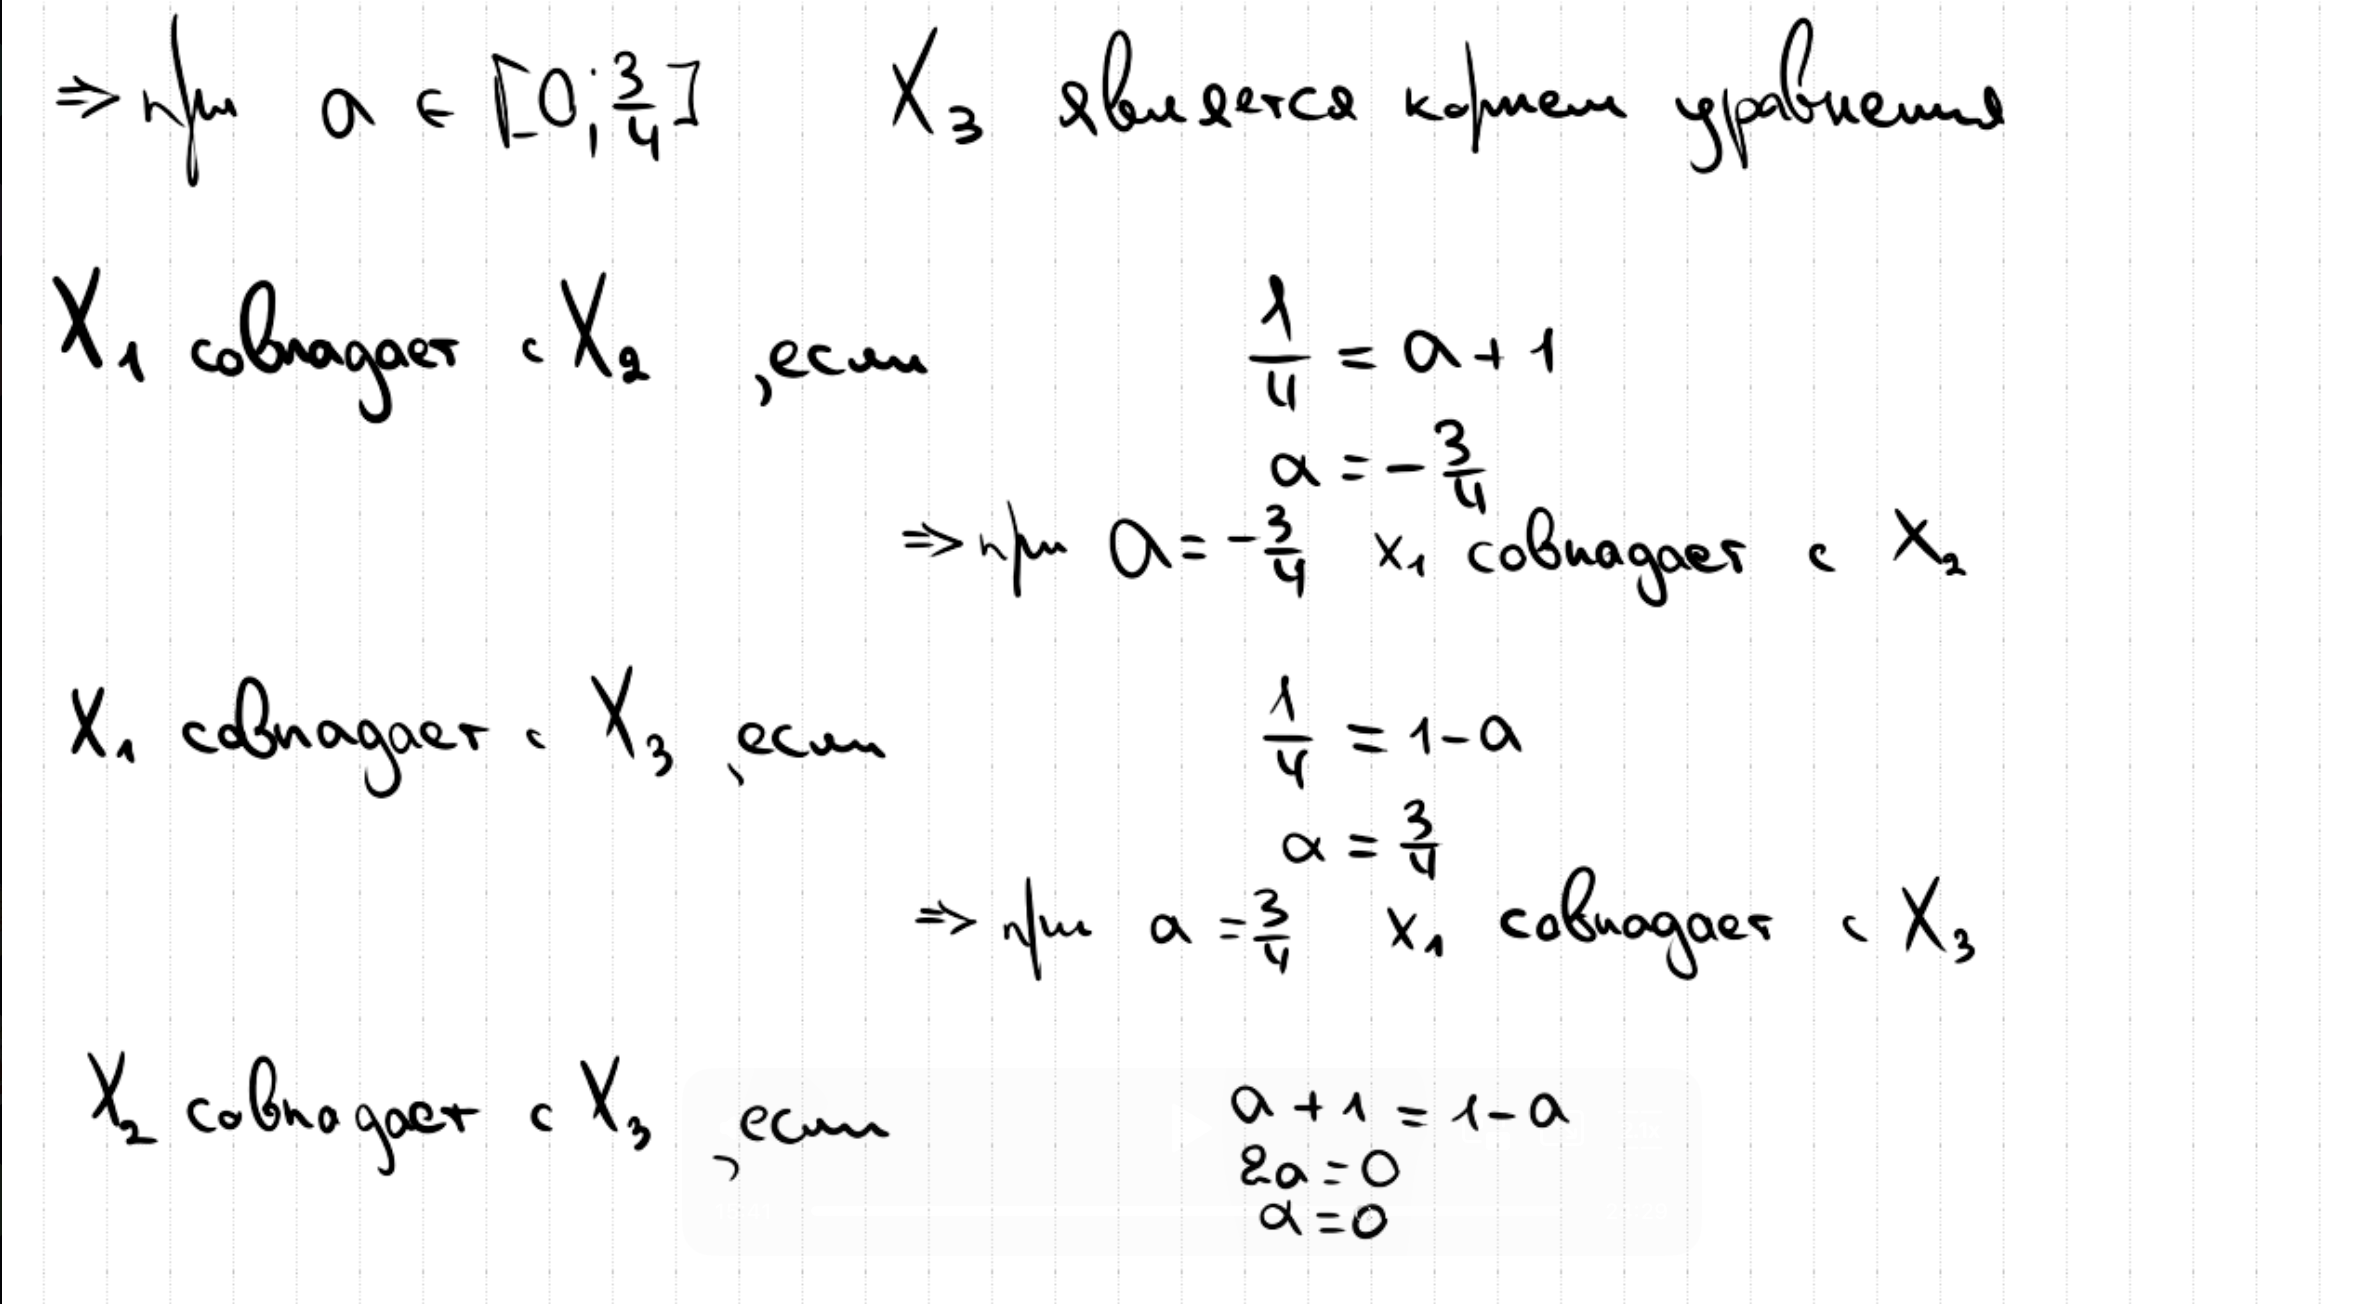 ⇒ при a ∈ [0; 3/4] X₃ является корнем уравнения
X₁ совпадает с X₂, если 1/4 = a + 1
a = -3/4
⇒ при a = -3/4 x₁ совпадает с X₂
X₁ совпадает с X₃, если 1/4 = 1 - a
a = 3/4
⇒ при a = 3/4 x₁ совпадает с X₃
X₂ совпадает с X₃, если a + 1 = 1 - a
2a = 0
a = 0